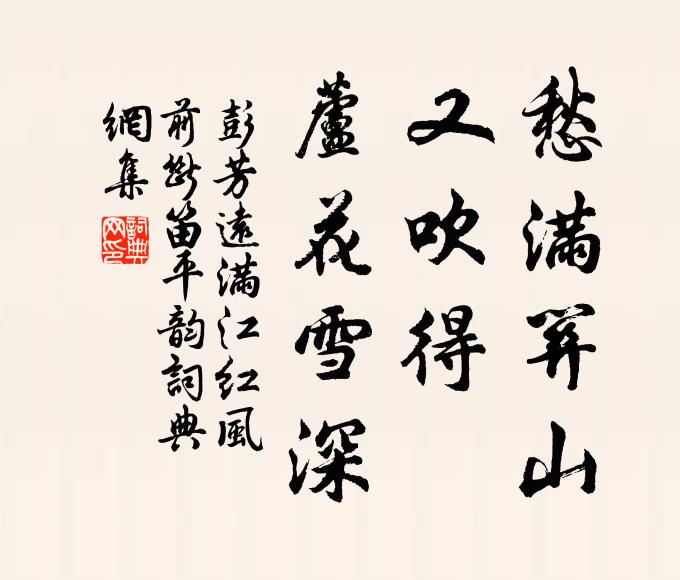 愁滿關山
又吹得
蘆花雪深
彭芳遠滿江紅風
前斷笛平韵詞典
網集
詞典
网印